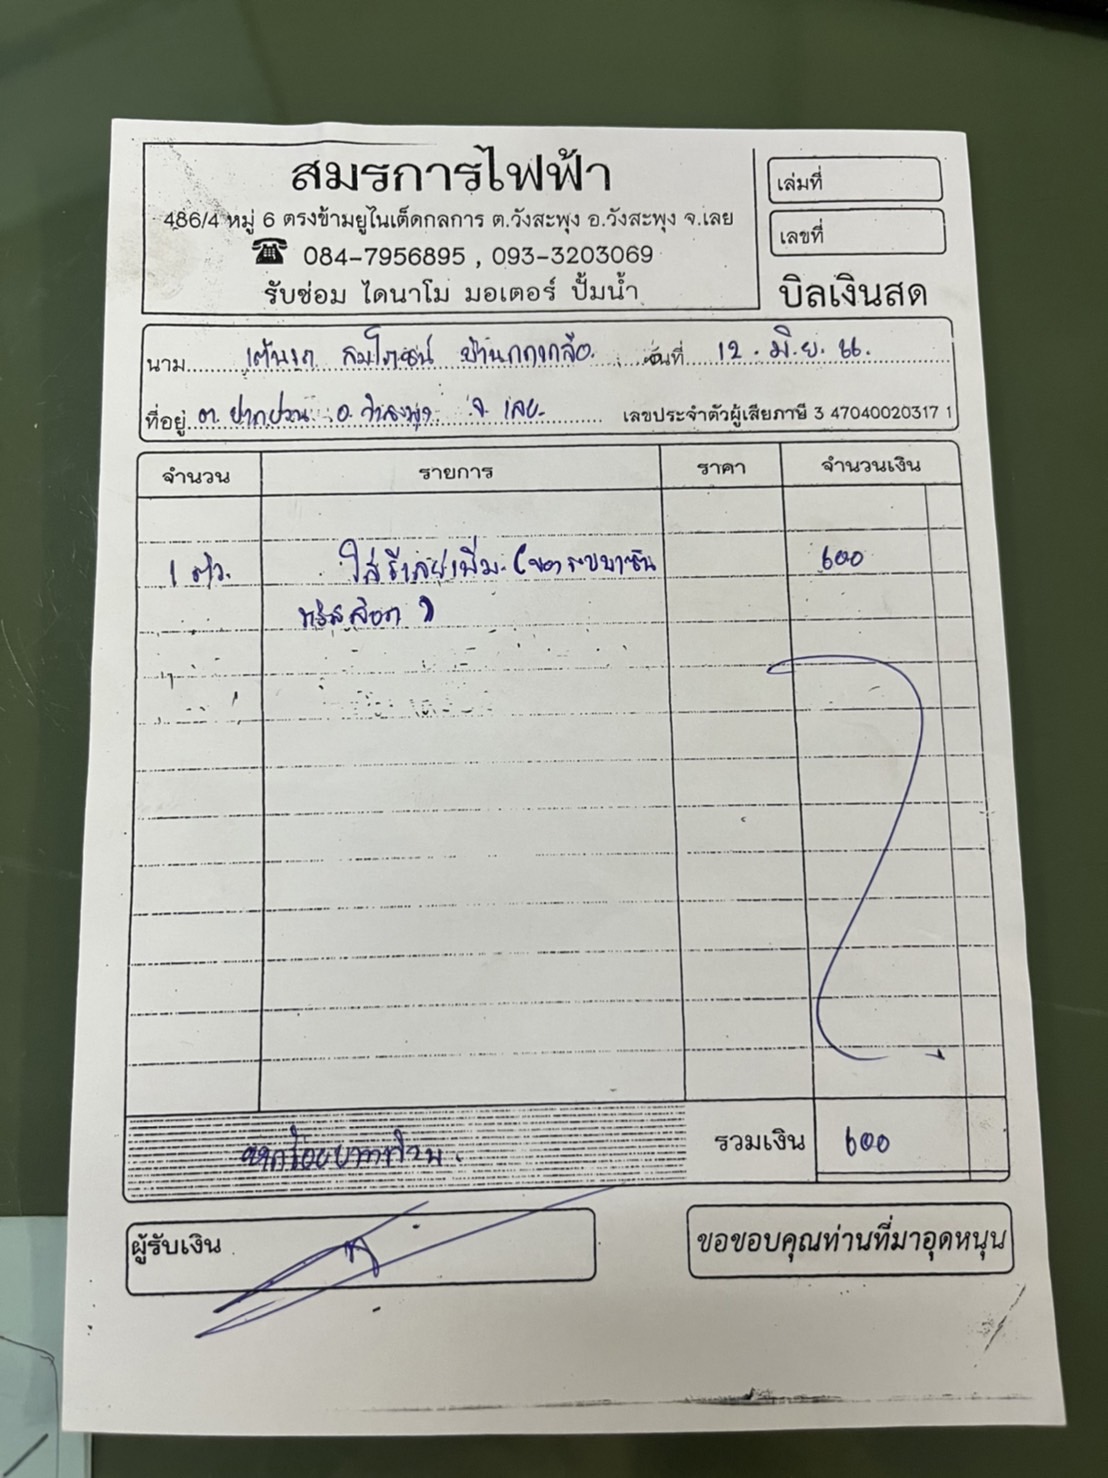 สมรการไฟฟ้า
486/4 หมู่ 6 ตรงข้ามยูไนเต็ดกลการ ต.วังสะพุง อ.วังสะพุง จ.เลย
084-7956895 , 093-3203069
รับซ่อม ไดนาโม มอเตอร์ ปั้มน้ำ
เล่มที่
เลขที่
บิลเงินสด
นาม เต้นรถ สมโภชน์ บ้านกกเกลือ วันที่ 12 . มิ.ย. 66.
ที่อยู่ ต. ปากปวน อ. วังสะพุง จ. เลย. เลขประจำตัวผู้เสียภาษี 3 47040020317 1
จำนวน รายการ ราคา จำนวนเงิน
1 ตัว. ใส่รีเลย์เพิ่ม. ( 600
)
รวมเงิน 600
หกร้อยบาทถ้วน.
ผู้รับเงิน
ขอขอบคุณท่านที่มาอุดหนุน